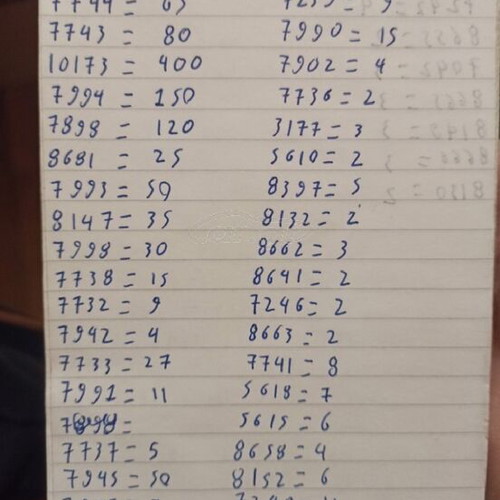 7743 = 80
7990 = 15
10173 = 400
7902 = 4
7994 = 150
7736 = 2
7898 = 120
3177 = 3
8681 = 25
5610 = 2
7993 = 50
8397 = 5
8147 = 35
8132 = 2
7998 = 30
8662 = 3
7738 = 15
8641 = 2
7732 = 9
7246 = 2
7942 = 4
8663 = 2
7733 = 27
7741 = 8
7991 = 11
5618 = 7
5615 = 6
7737 = 5
8658 = 4
7945 = 50
8152 = 6